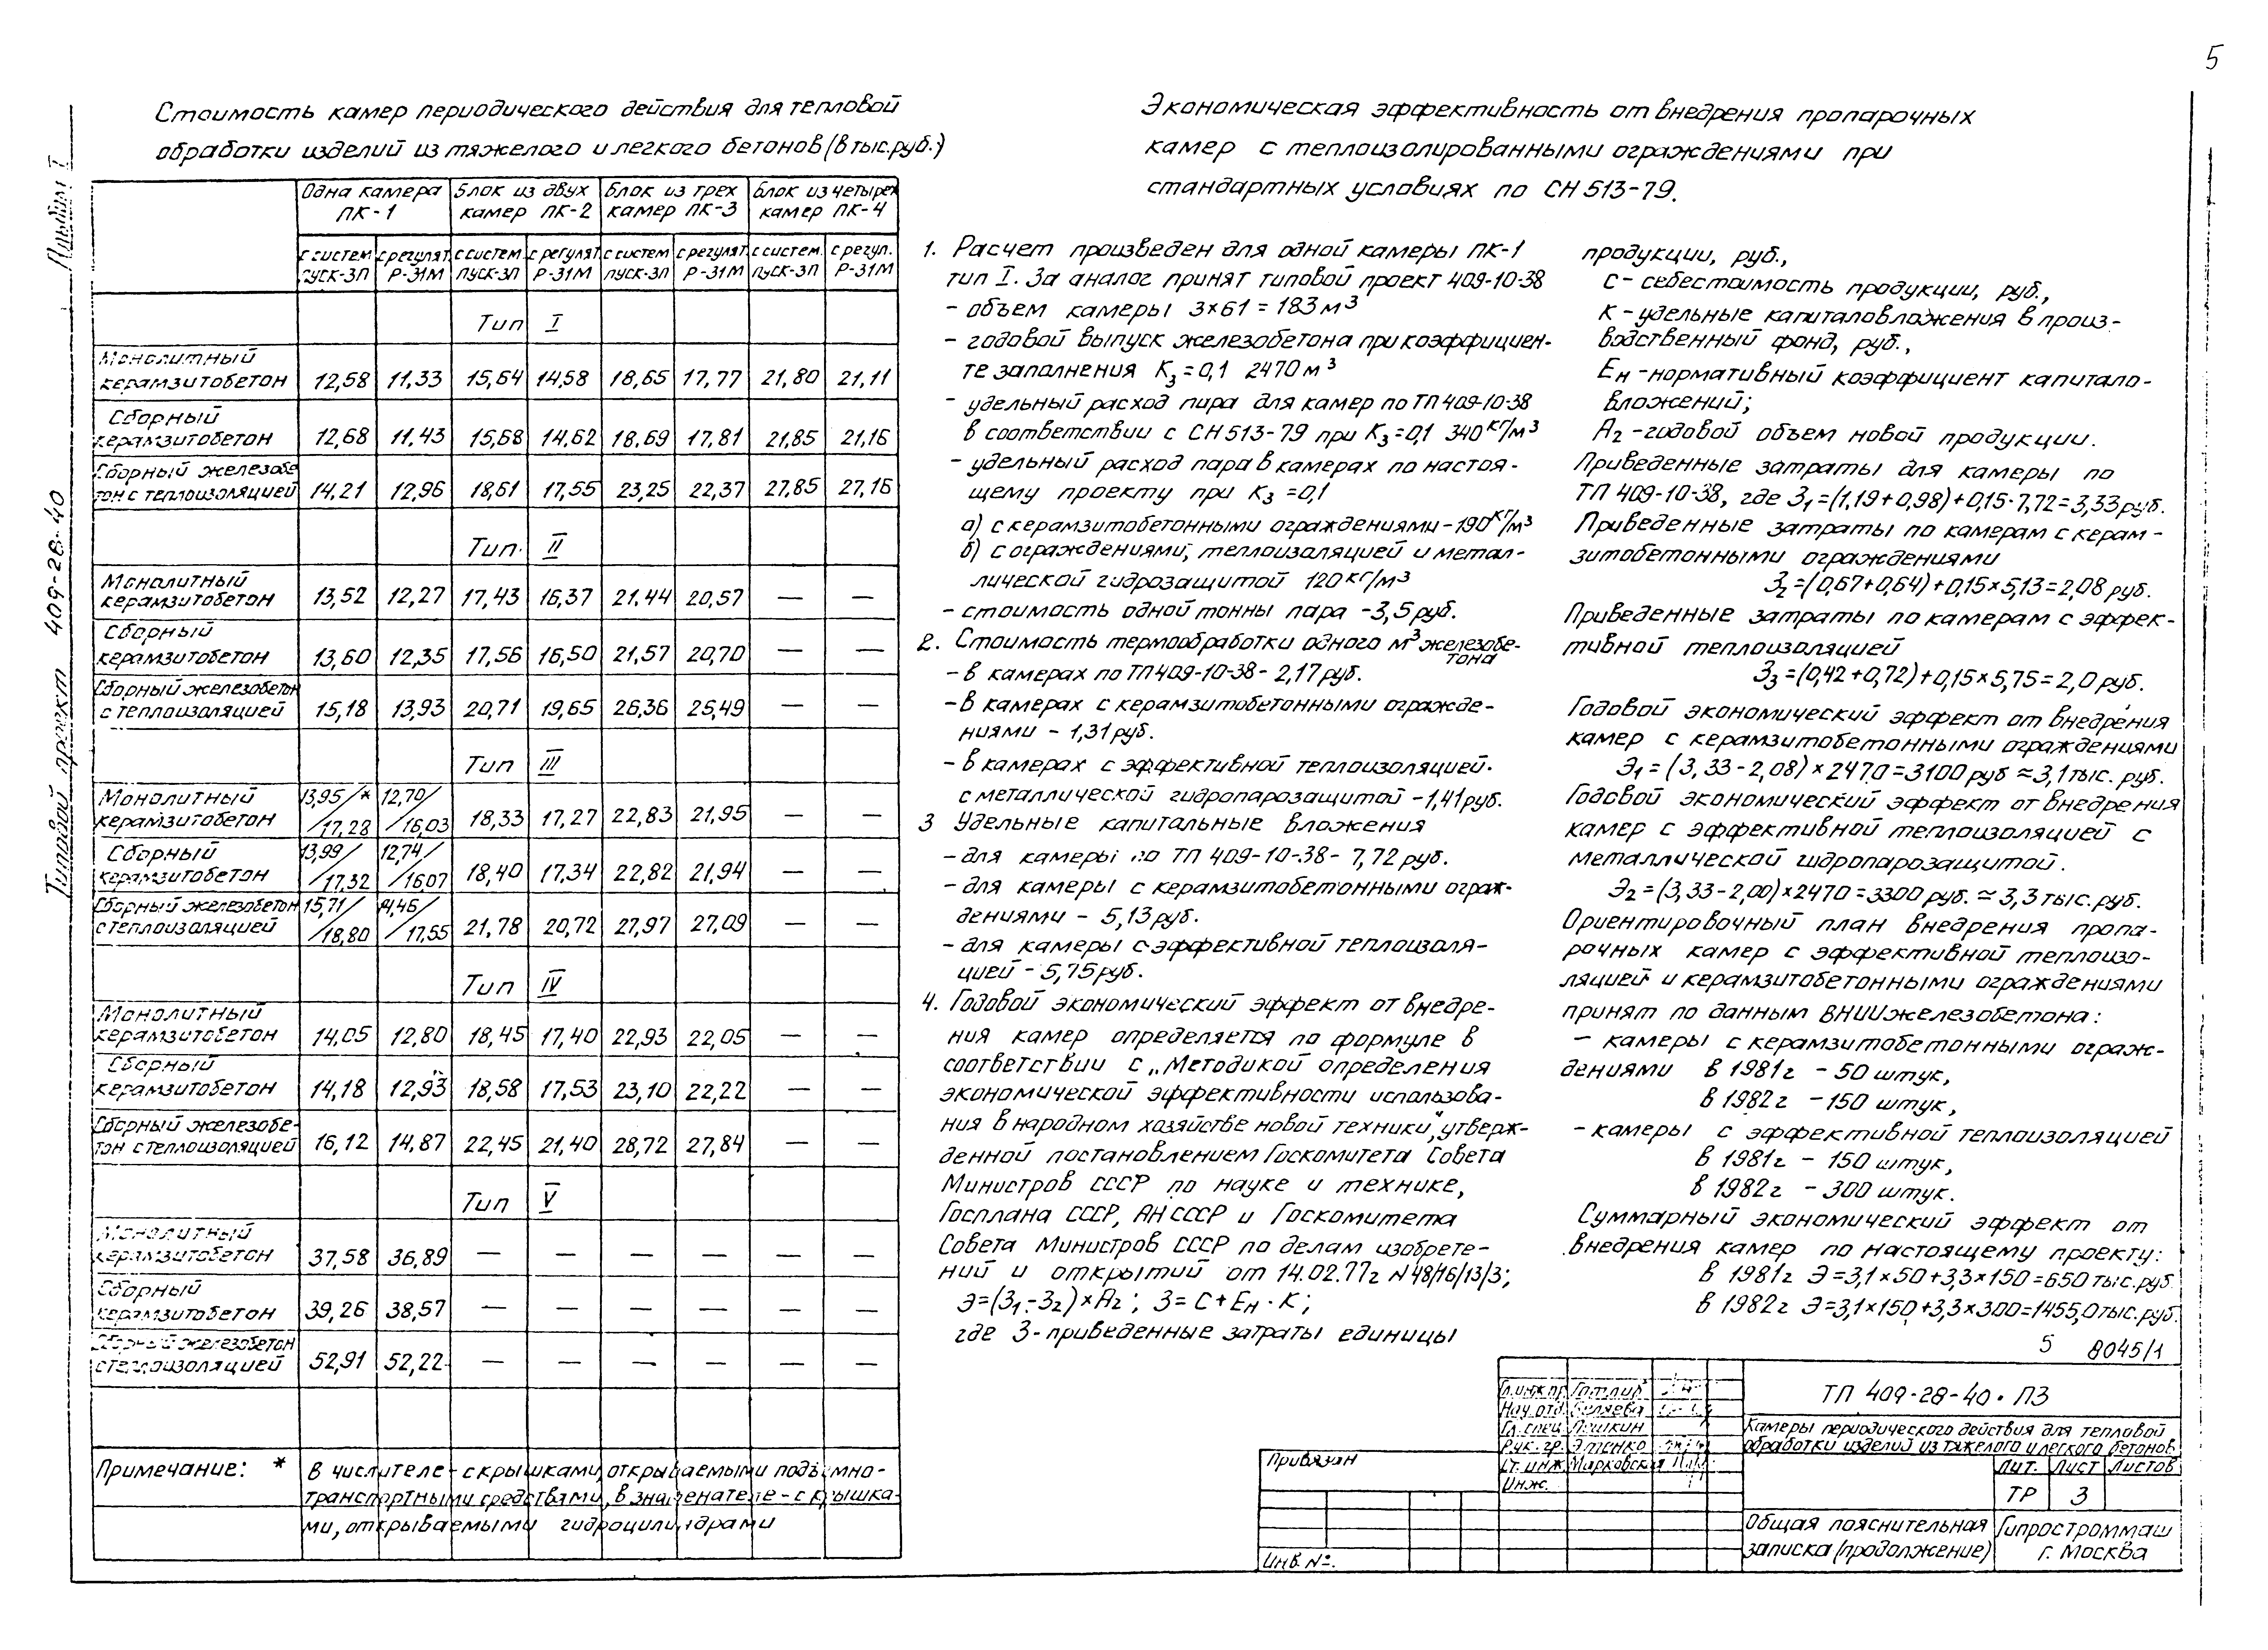 5
Альбом I
Типовой проект 409-28-40
Стоимость камер периодического действия для тепловой
обработки изделий из тяжелого и легкого бетонов (в тыс.руб.)
Одна камера ПК-1 | Блок из двух камер ПК-2 | Блок из трех камер ПК-3 | Блок из четырех камер ПК-4
с систем. пуск-3П | с регулят. Р-31М | с систем. пуск-3П | с регулят. Р-31М | с систем. пуск-3П | с регулят. Р-31М | с систем. пуск-3П | с регул. Р-31М
Тип I
Монолитный
керамзитобетон 12,58 11,33 15,64 14,58 18,65 17,77 21,80 21,11
Сборный
керамзитобетон 12,68 11,43 15,68 14,62 18,69 17,81 21,85 21,16
Сборный железобе
тон с теплоизоляцией 14,21 12,96 18,61 17,55 23,25 22,37 27,85 27,16
Тип II
Монолитный
керамзитобетон 13,52 12,27 17,43 16,37 21,44 20,57 — —
Сборный
керамзитобетон 13,60 12,35 17,56 16,50 21,57 20,70 — —
Сборный железобетон
с теплоизоляцией 15,18 13,93 20,71 19,65 26,36 25,49 — —
Тип III
Монолитный
керамзитобетон 13,95/17,28* 12,70/16,03 18,33 17,27 22,83 21,95 — —
Сборный
керамзитобетон 13,99/17,32 12,74/16,07 18,40 17,34 22,82 21,94 — —
Сборный железобетон
с теплоизоляцией 15,71/18,80 14,46/17,55 21,78 20,72 27,97 27,09 — —
Тип IV
Монолитный
керамзитобетон 14,05 12,80 18,45 17,40 22,93 22,05 — —
Сборный
керамзитобетон 14,18 12,93 18,58 17,53 23,10 22,22 — —
Сборный железобе-
тон с теплоизоляцией 16,12 14,87 22,45 21,40 28,72 27,84 — —
Тип V
Монолитный
керамзитобетон 37,58 36,89 — — — — — —
Сборный
керамзитобетон 39,26 38,57 — — — — — —
Сборный железобетон
с теплоизоляцией 52,91 52,22 — — — — — —
Примечание: * В числителе - с крышками, открываемыми подъемно-
транспортными средствами, в знаменателе - с крышка-
ми, открываемыми гидроцилиндрами
Экономическая эффективность от внедрения пропарочных
камер с теплоизолированными ограждениями при
стандартных условиях по СН 513-79.
1. Расчет произведен для одной камеры ПК-1
тип I. За аналог принят типовой проект 409-10-38
- объем камеры 3×61 = 183 м³
- годовой выпуск железобетона при коэффициен-
те заполнения Кз = 0,1 2470 м³
- удельный расход пара для камер по ТП 409-10-38
в соответствии с СН 513-79 при Кз = 0,1 340 кг/м³
- удельный расход пара в камерах по настоя-
щему проекту при Кз = 0,1
а) с керамзитобетонными ограждениями - 190 кг/м³
б) с ограждениями, теплоизоляцией и метал-
лической гидрозащитой 120 кг/м³
- стоимость одной тонны пара - 3,5 руб.
2. Стоимость термообработки одного м³ железобе-
тона
- в камерах по ТП 409-10-38 - 2,17 руб.
- в камерах с керамзитобетонными огражде-
ниями - 1,31 руб.
- в камерах с эффективной теплоизоляцией.
с металлической гидропарозащитой - 1,41 руб.
3 Удельные капитальные вложения
- для камеры по ТП 409-10-38 - 7,72 руб.
- для камеры с керамзитобетонными ограж-
дениями - 5,13 руб.
- для камеры с эффективной теплоизоля-
цией - 5,75 руб.
4. Годовой экономический эффект от внедре-
ния камер определяется по формуле в
соответствии с „Методикой определения
экономической эффективности использова-
ния в народном хозяйстве новой техники", утверж-
денной постановлением Госкомитета Совета
Министров СССР по науке и технике,
Госплана СССР, АН СССР и Госкомитета
Совета Министров СССР по делам изобрете-
ний и открытий от 14.02.77г N 48/16/13/3;
Э = (З₁ - З₂) × А₂; З = С + Ен · К;
где З - приведенные затраты единицы
продукции, руб.,
С - себестоимость продукции, руб.,
К - удельные капиталовложения в произ-
водственный фонд, руб.,
Ен - нормативный коэффициент капитало-
вложений;
А₂ - годовой объем новой продукции.
Приведенные затраты для камеры по
ТП 409-10-38, где З₁ = (1,19 + 0,98) + 0,15 · 7,72 = 3,33 руб.
Приведенные затраты по камерам с керам-
зитобетонными ограждениями
З₂ = (0,67 + 0,64) + 0,15 × 5,13 = 2,08 руб.
Приведенные затраты по камерам с эффек-
тивной теплоизоляцией
З₃ = (0,42 + 0,72) + 0,15 × 5,75 = 2,0 руб.
Годовой экономический эффект от внедрения
камер с керамзитобетонными ограждениями
Э₁ = (3,33 - 2,08) × 2470 = 3100 руб ≈ 3,1 тыс. руб.
Годовой экономический эффект от внедрения
камер с эффективной теплоизоляцией с
металлической гидропарозащитой.
Э₂ = (3,33 - 2,00) × 2470 = 3300 руб. ≈ 3,3 тыс. руб.
Ориентировочный план внедрения пропа-
рочных камер с эффективной теплоизо-
ляцией и керамзитобетонными ограждениями
принят по данным ВНИИжелезобетона:
- камеры с керамзитобетонными ограж-
дениями в 1981г - 50 штук,
в 1982г - 150 штук,
- камеры с эффективной теплоизоляцией
в 1981г - 150 штук,
в 1982г - 300 штук.
Суммарный экономический эффект от
внедрения камер по настоящему проекту:
в 1981г Э = 3,1 × 50 + 3,3 × 150 = 650 тыс. руб.
в 1982г Э = 3,1 × 150 + 3,3 × 300 = 1455,0 тыс. руб.
5 8045/1
Гл. инж. пр. Готлиб
Нач. отд. Беляева
Гл. спец. Пушкин
Рук. гр.
Ст. инж. Марковская
Инж.
Привязан
Инв. №.
ТП 409-28-40 · ПЗ
Камеры периодического действия для тепловой
обработки изделий из тяжелого и легкого бетонов
Лит. Лист Листов
ТР 3
Общая пояснительная
записка (продолжение)
Гипростроммаш
г. Москва